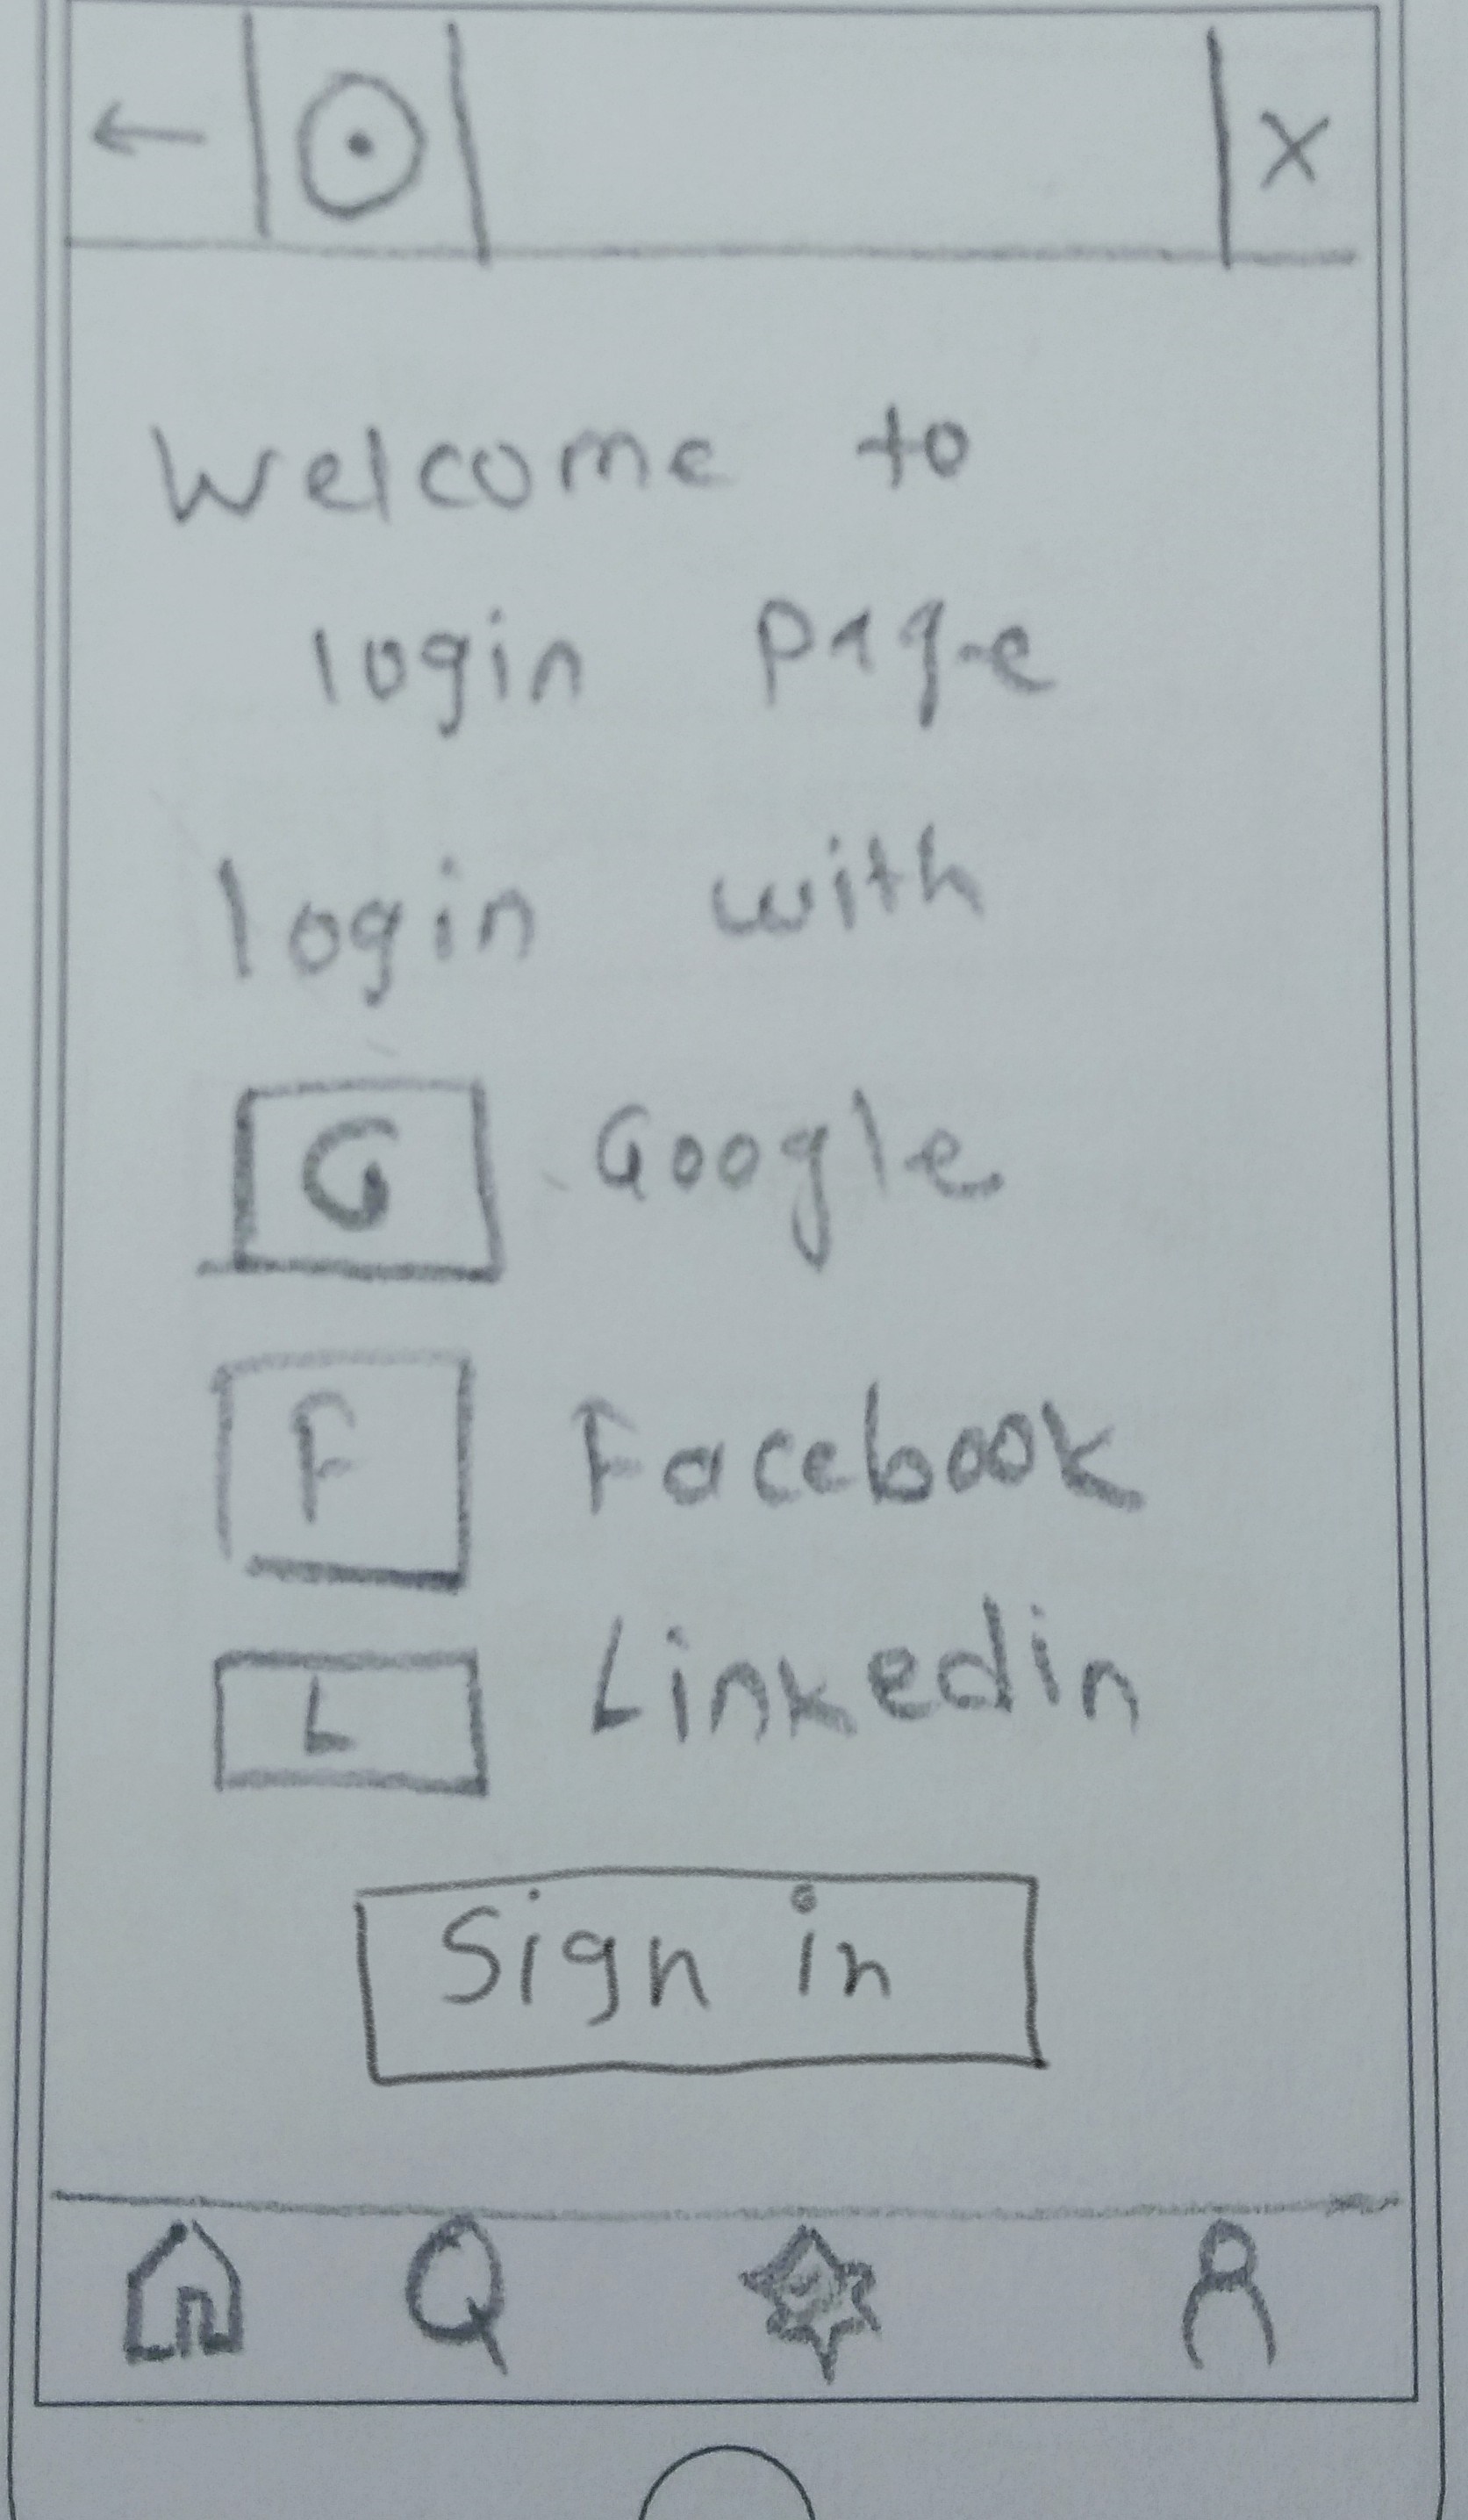 Welcome to
login page
login with
G Google
F Facebook
L Linkedin
Sign in